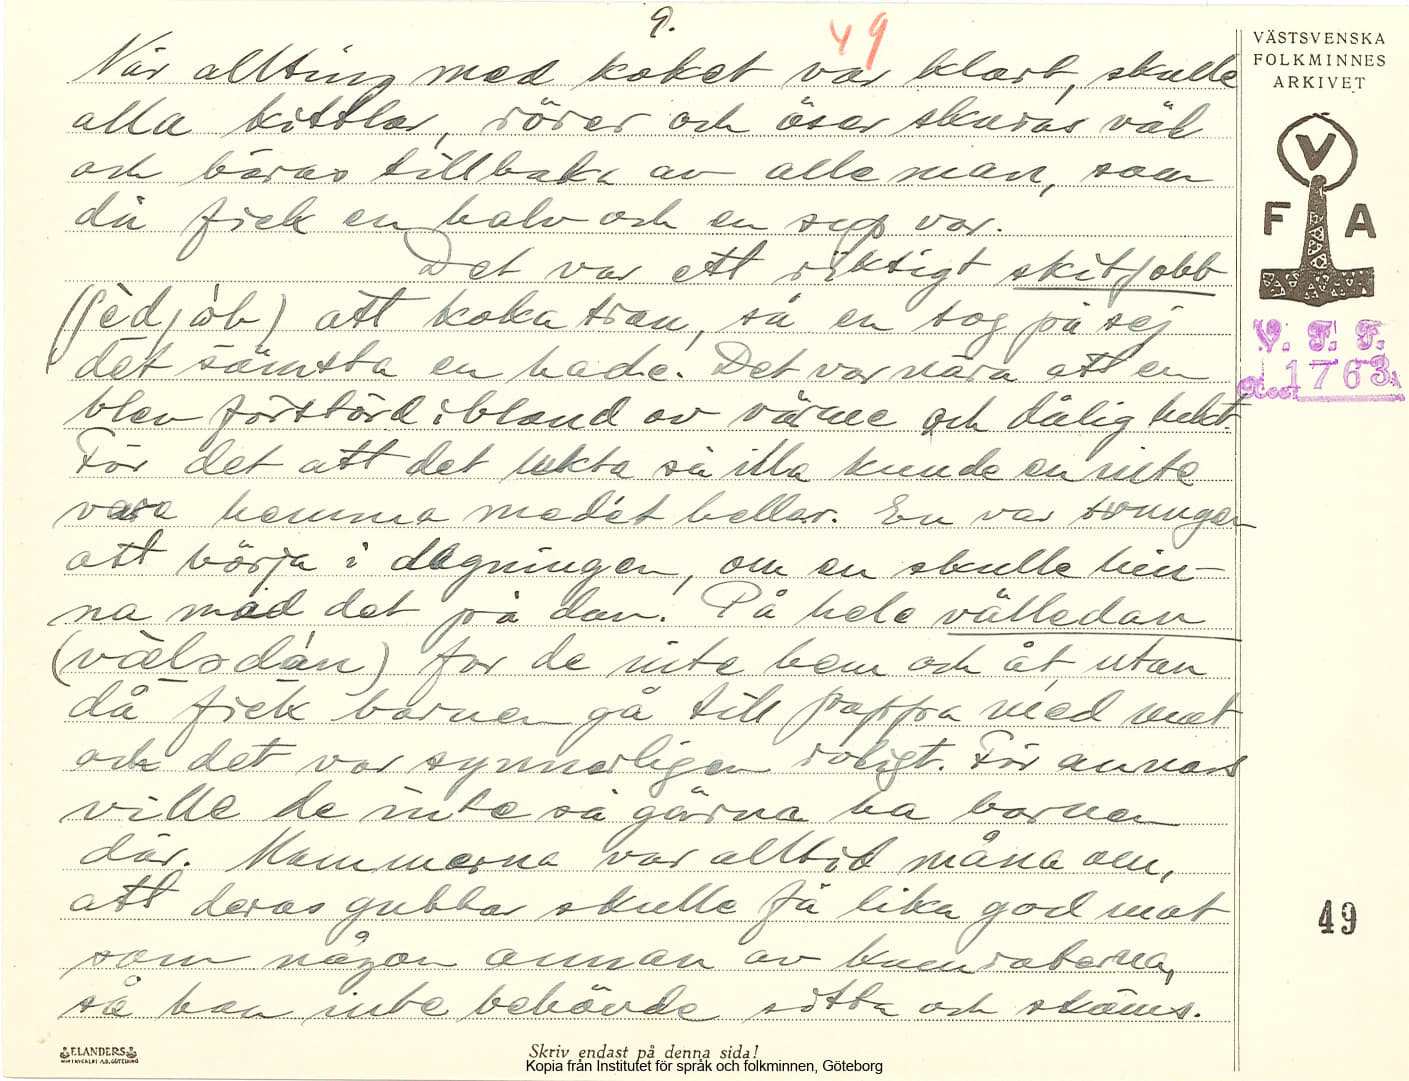 9.
49
När allting med koket var klart, skulle
alla kittlar, rörer och öser skuras väl
och bäras tillbaka av alle man, som
då fick en halv och en sup var.
Det var ett riktigt skitjobb
att koka tran, så en tog på sej
det sämsta en hade. Det var nära att en
blev förstörd ibland av värme och dålig lukt.
För det att det lukta så illa kunde en inte
vara hemma med'et heller. En var tvungen
att börja i dagningen, om en skulle hin-
na med det på dan. På hele välledan
for de inte hem och åt, utan
då fick barnen gå till pappa med mat
och det var synnerligen roligt. För annars
ville de inte så gärna ha barnen
där. Mammerna var alltid måna om,
att deras gubbar skulle få lika god mat
som någon annan av kamraterna,
så han inte behövde sitta och skäms.
VÄSTSVENSKA
FOLKMINNES
ARKIVET
V
F A
V. F. F.
Acc. 1763
49
ELANDERS
Skriv endast på denna sida!
Kopia från Institutet för språk och folkminnen, Göteborg